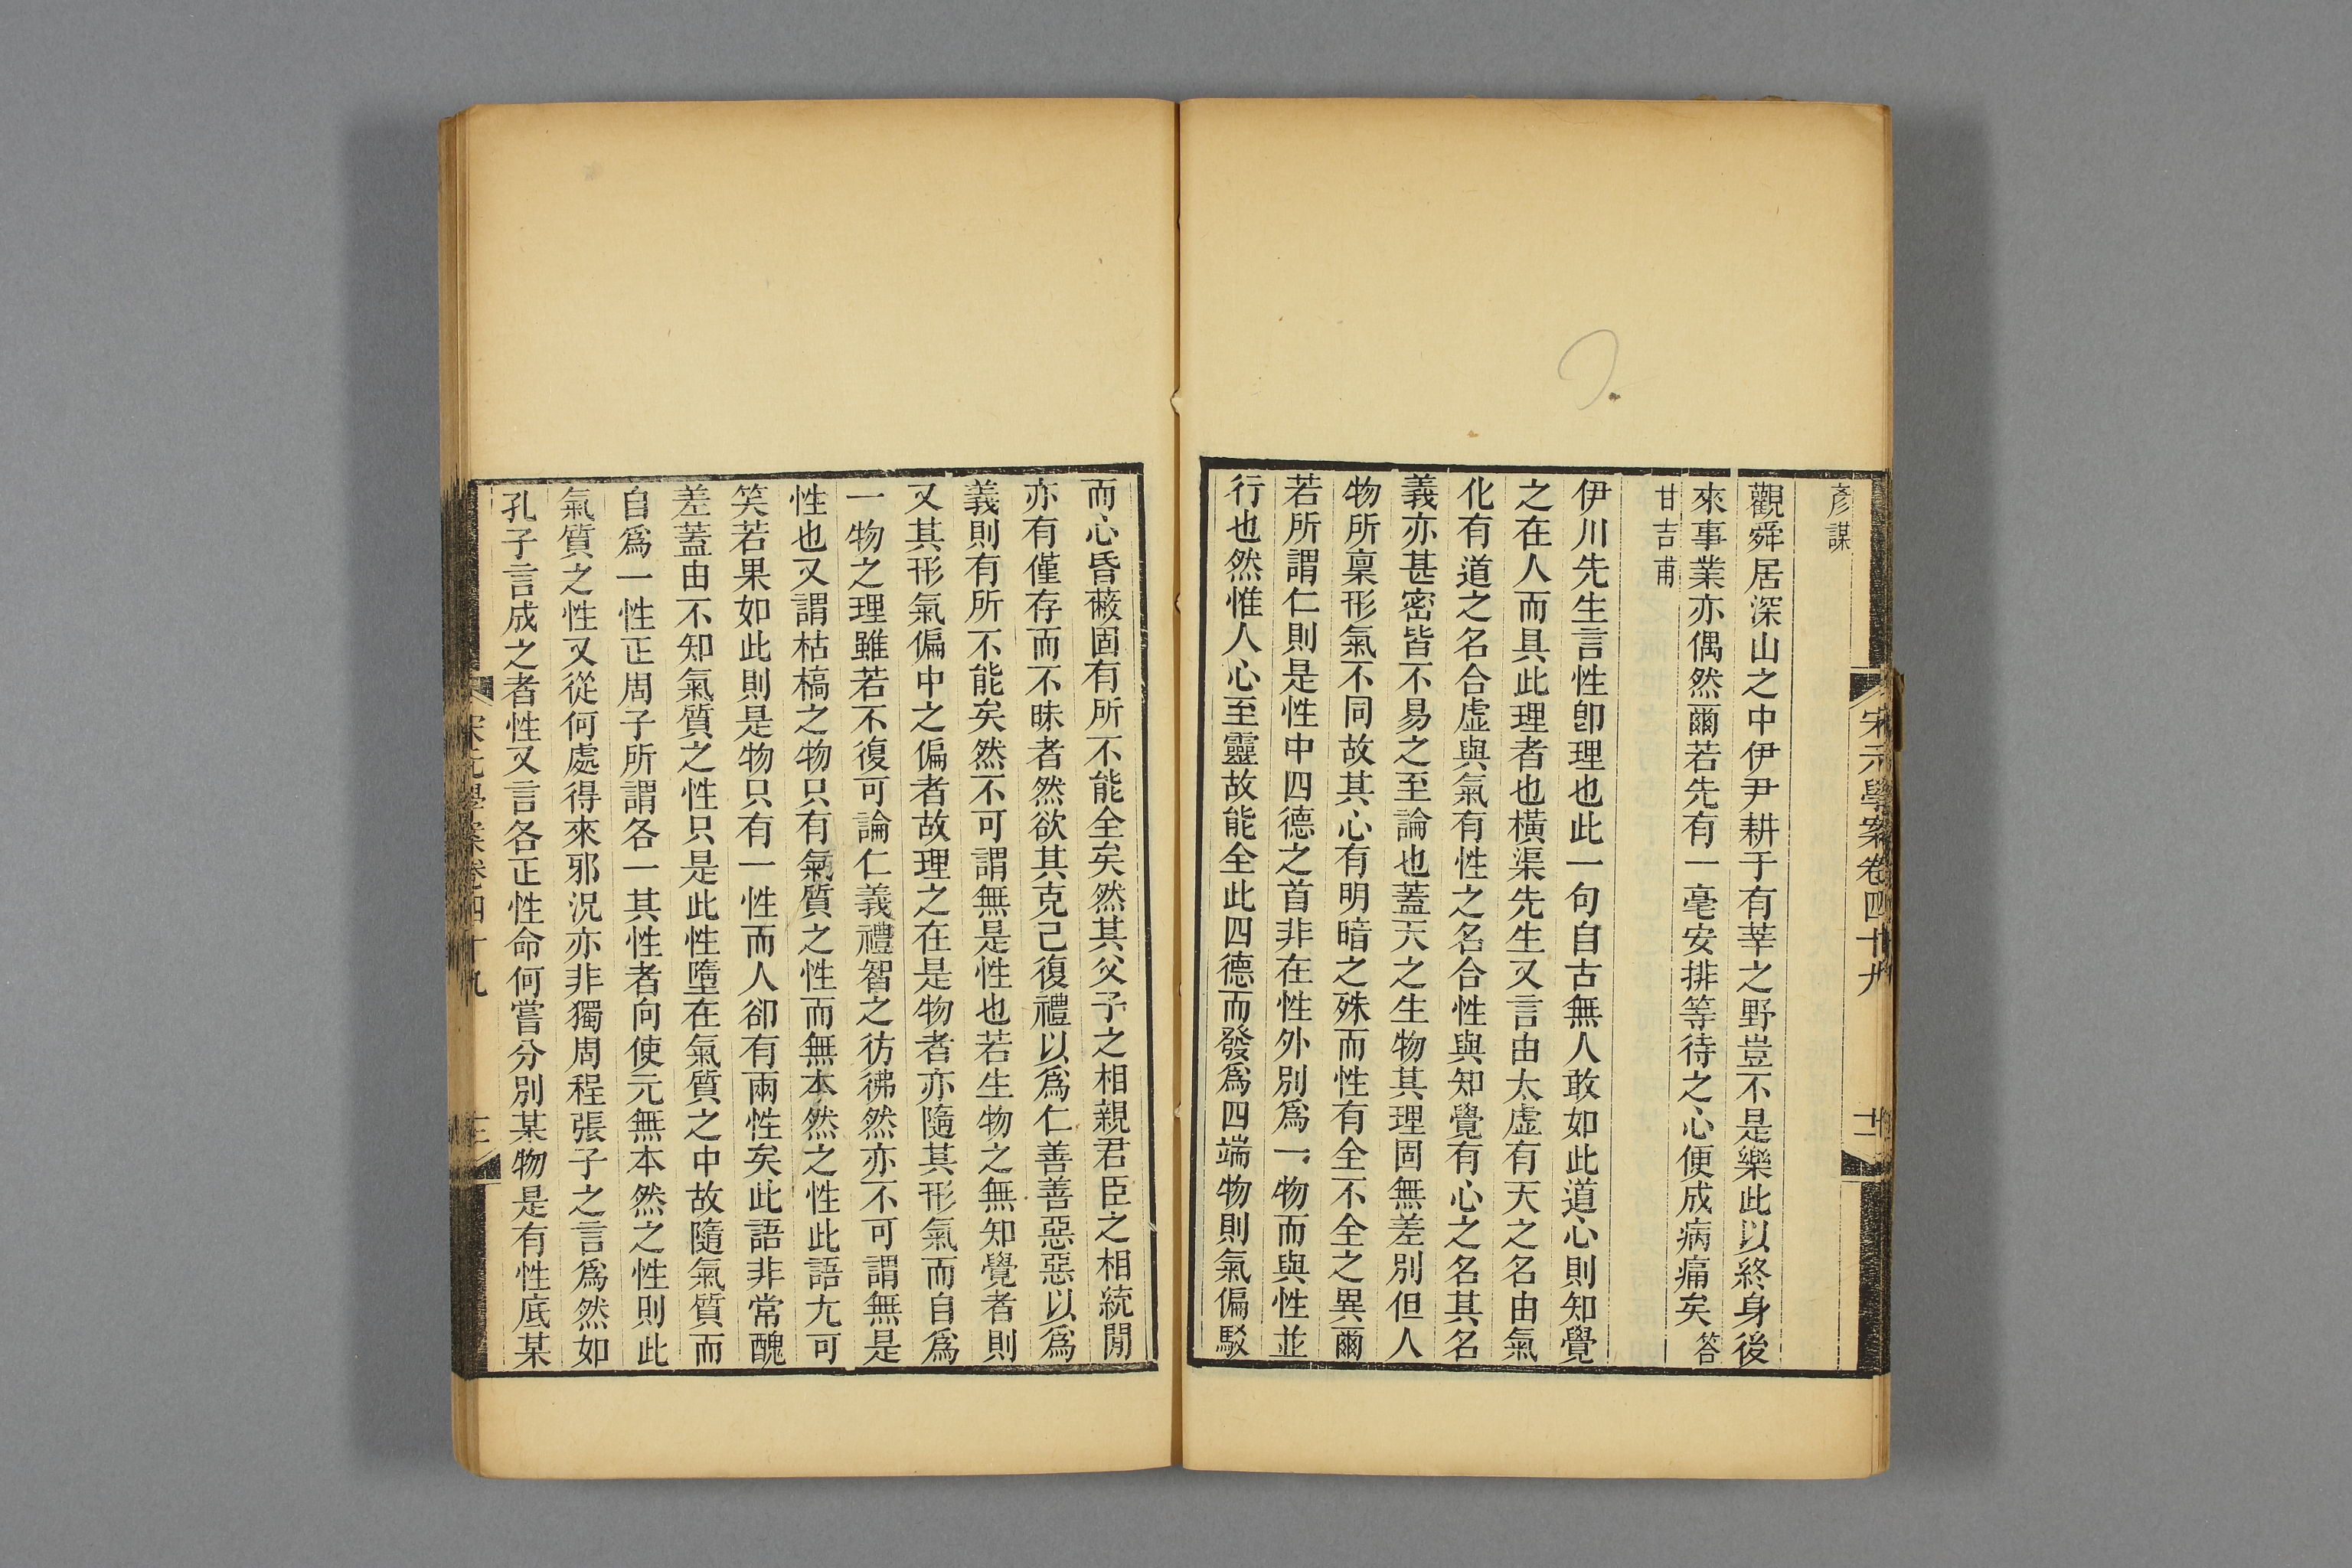 宋元學案卷四十九
彥謀
觀舜居深山之中伊尹耕于有莘之野豈不是樂此以終身後
來事業亦偶然爾若先有一毫安排等待之心便成病痛矣答
甘吉甫
伊川先生言性卽理也此一句自古無人敢如此道心則知覺
之在人而具此理者也橫渠先生又言由太虛有天之名由氣
化有道之名合虛與氣有性之名合性與知覺有心之名其名
義亦甚密皆不易之至論也蓋天之生物其理固無差別但人
物所稟形氣不同故其心有明暗之殊而性有全不全之異爾
若所謂仁則是性中四德之首非在性外別爲一物而與性並
行也然惟人心至靈故能全此四德而發爲四端物則氣偏駁
而心昏蔽固有所不能全矣然其父子之相親君臣之相統閒
亦有僅存而不昧者然欲其克己復禮以爲仁善善惡惡以爲
義則有所不能矣然不可謂無是性也若生物之無知覺者則
又其形氣偏中之偏者故理之在是物者亦隨其形氣而自爲
一物之理雖若不復可論仁義禮智之彷彿然亦不可謂無是
性也又謂枯槁之物只有氣質之性而無本然之性此語尤可
笑若果如此則是物只有一性而人卻有兩性矣此語非常醜
差蓋由不知氣質之性只是此性墮在氣質之中故隨氣質而
自爲一性正周子所謂各一其性者向使元無本然之性則此
氣質之性又從何處得來邪況亦非獨周程張子之言爲然如
孔子言成之者性又言各正性命何嘗分別某物是有性底某
宋元學案卷四十九